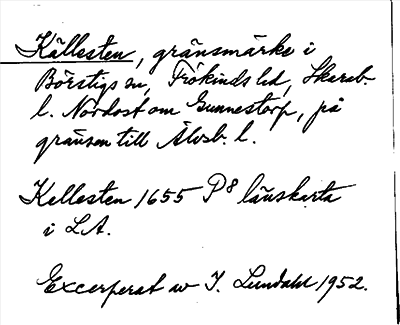 Källesten, gränsmärke i
Börstigs sn, Frökinds hd, Skarab.
l. Nordost om Gunnestorp, på
gränsen till Älvsb. l.
Kellesten 1655 P8 länskarta
i LA.
Excerperat av I. Lundahl 1952.